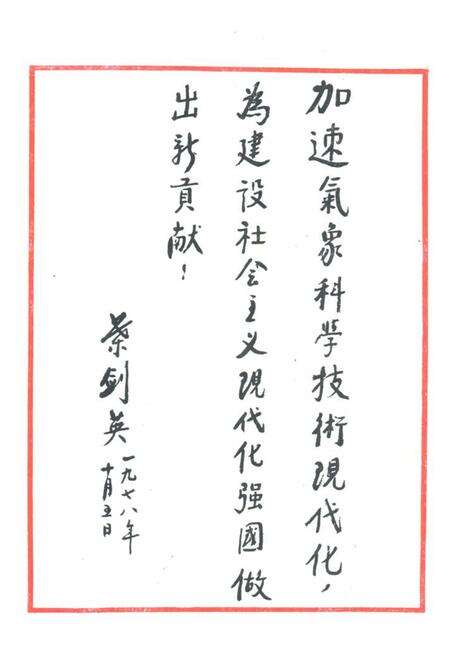 加速氣象科學技術現代化，
為建设社会主义現代化强國做
出新貢献！
葉剑英
一九七八年
十月五日